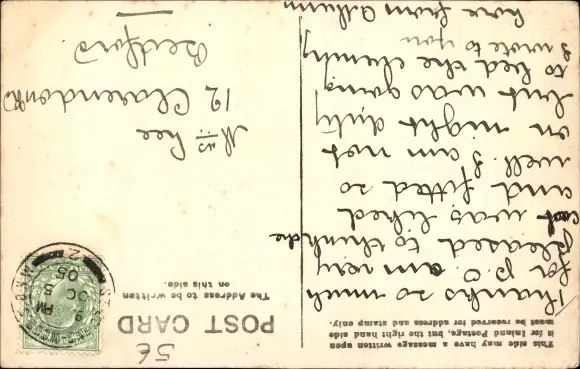 This side may have a message written upon
it for Inland Postage, but the right hand side
must be reserved for address and stamp only.
POST CARD
The Address to be written
on this side.
5£
9 PM
OC 5
05
2
Thanks so much
for p.c. am very
pleased to think the
was liked
and fitted so
well. I am not
on night duty
but was going
to bed the
I wrote to you
here from
Mrs Lee
12 Clarendon Rd
Bedford.